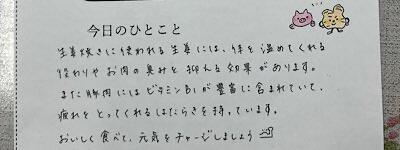 今日のひとこと
生姜焼きに使われる生姜には、体を温めてくれる
役わりやお肉の臭みを抑える効果があります。
また豚肉にはビタミンB1が豊富に含まれていて、
疲れをとってくれるはたらきを持っています。
おいしく食べて、元気をチャージしましょう